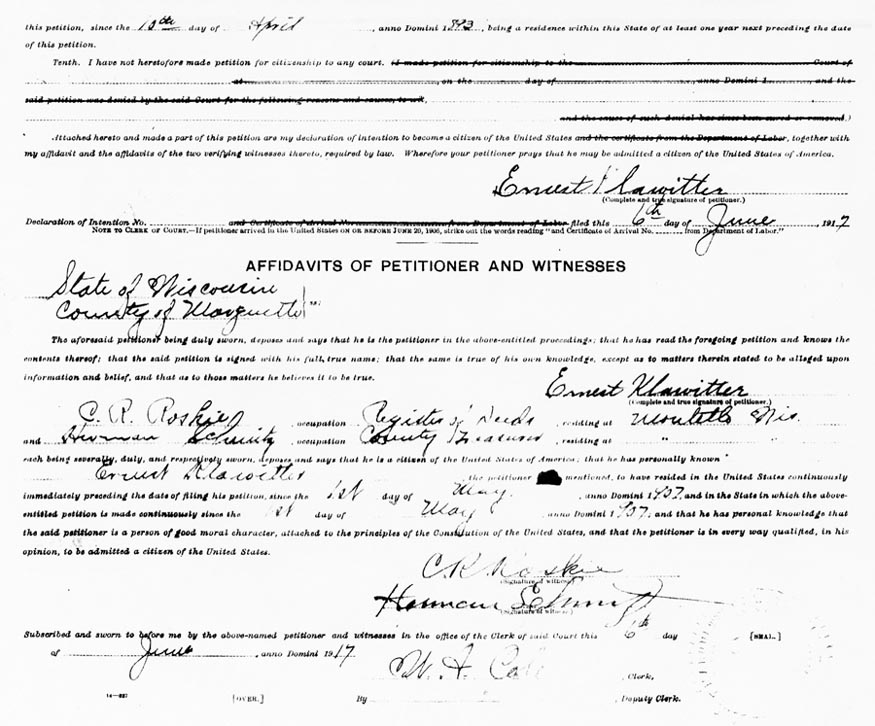 this petition, since the 10th day of April, anno Domini 1893, being a residence within this State of at least one year next preceding the date
of this petition.
Tenth. I have not heretofore made petition for citizenship to any court. (I made petition for citizenship to the Court of
at , on the day of anno Domini 1 and the
said petition was denied by the said Court for the following reasons and causes, to wit,
and the cause of such denial has since been cured or removed.)
Attached hereto and made a part of this petition are my declaration of intention to become a citizen of the United States and the certificate from the Department of Labor, together with
my affidavit and the affidavits of the two verifying witnesses thereto, required by law. Wherefore your petitioner prays that he may be admitted a citizen of the United States of America.
Ernest Klawitter
(Complete and true signature of petitioner.)
Declaration of Intention No. and Certificate of Arrival No. from Department of Labor filed this 6th day of June, 1917
NOTE TO CLERK OF COURT.—If petitioner arrived in the United States ON OR BEFORE JUNE 29, 1906, strike out the words reading "and Certificate of Arrival No. from Department of Labor."
AFFIDAVITS OF PETITIONER AND WITNESSES
State of Wisconsin
County of Marquette ss:
The aforesaid petitioner being duly sworn, deposes and says that he is the petitioner in the above-entitled proceedings; that he has read the foregoing petition and knows the
contents thereof; that the said petition is signed with his full, true name; that the same is true of his own knowledge, except as to matters therein stated to be alleged upon
information and belief, and that as to those matters he believes it to be true.
Ernest Klawitter
(Complete and true signature of petitioner.)
C. R. Roskie, occupation Register of Deeds, residing at Montello Wis.
and Herman Schmitz, occupation County Treasurer, residing at " "
each being severally, duly, and respectively sworn, deposes and says that he is a citizen of the United States of America; that he has personally known
Ernest Klawitter, the petitioner mentioned, to have resided in the United States continuously
immediately preceding the date of filing his petition, since the 1st day of May, anno Domini 1907, and in the State in which the above-
entitled petition is made continuously since the 1st day of May, anno Domini 1907, and that he has personal knowledge that
the said petitioner is a person of good moral character, attached to the principles of the Constitution of the United States, and that the petitioner is in every way qualified, in his
opinion, to be admitted a citizen of the United States.
C. R. Roskie
(Signature of witness.)
Herman Schmitz
(Signature of witness.)
Subscribed and sworn to before me by the above-named petitioner and witnesses in the office of the Clerk of said Court this 6th day [SEAL.]
of June, anno Domini 1917
W. A. , Clerk.
14—827 [OVER.] By , Deputy Clerk.